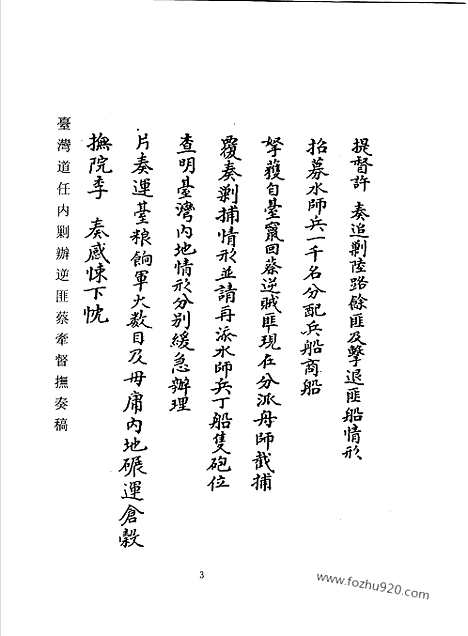 提督許 奏追剿陸路餘匪及擊退匪船情形
招募水師兵一千名分配兵船商船
拏獲自臺竄回蔡逆賊匪現在分派舟師截捕
覆奏剿捕情形並請再派水師兵丁船隻砲位
查明臺灣內地情形分別緩急辦理
片奏運臺粮餉軍火數目及毋庸內地碾運倉穀
撫院李 奏感悚下忱
臺灣道任內剿辦逆匪蔡牽督撫奏稿
3
www.fozhu920.com